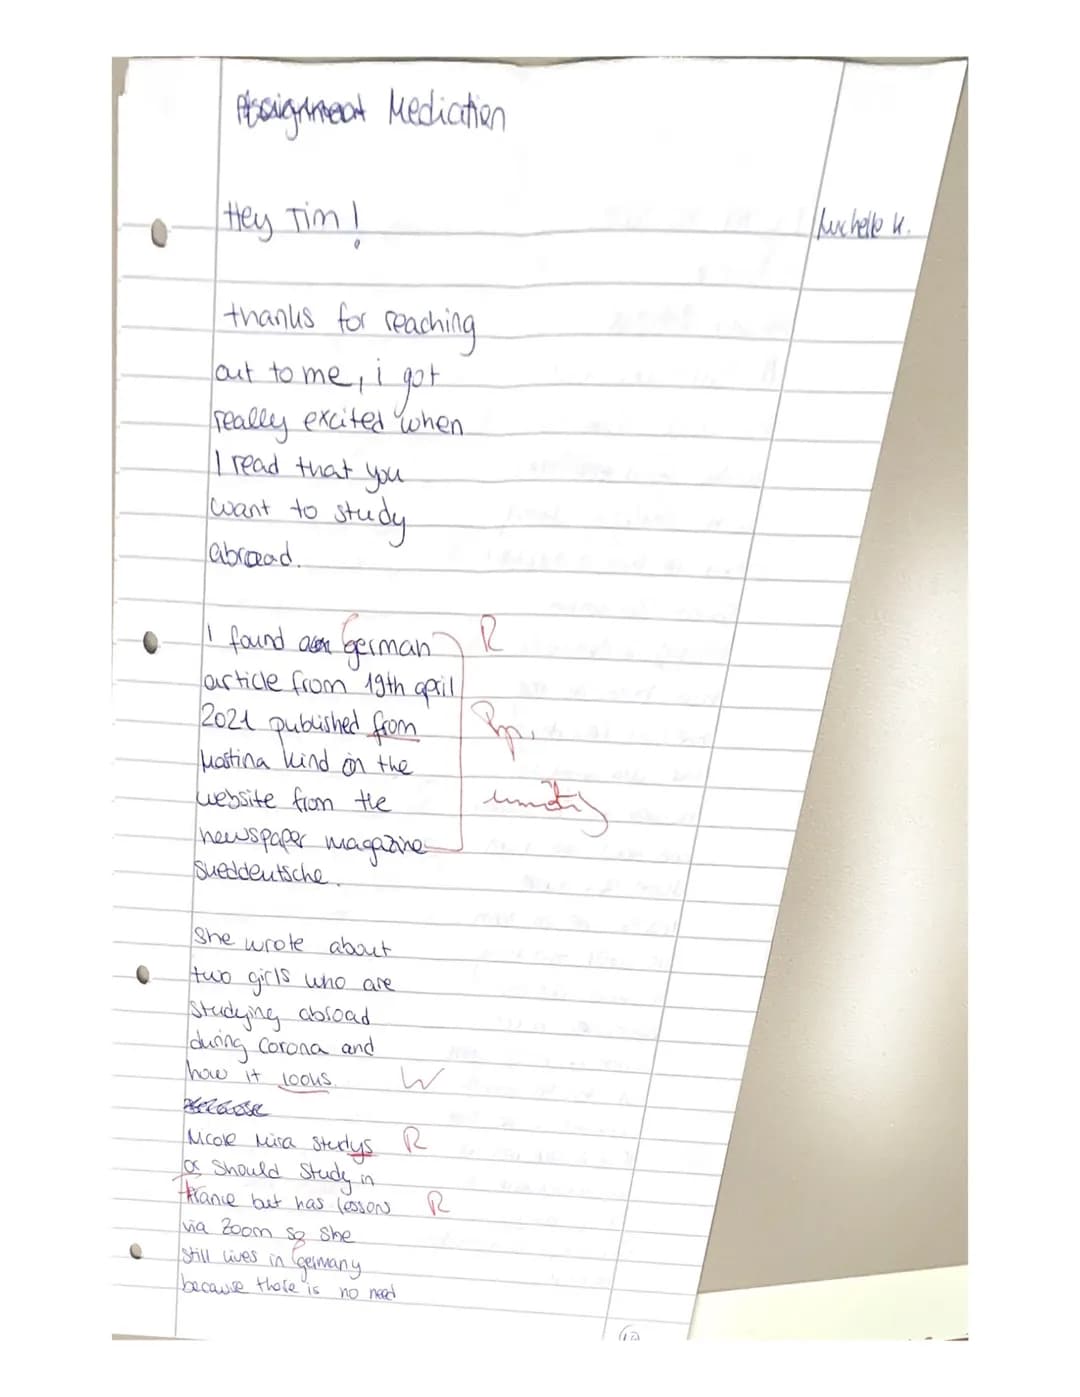 Assignment Mediation
Hey Tim!
Michelle K.
thanks for reaching
out to me, i got
really excited when
I read that you
want to study
abroad.
I found german R
article from 19th april
2021 published from
Martina kind on the
website from the
newspaper magazine
Sueddeutsche.
She wrote about
two girls who are
studying abroad
during Corona and
how it looks. W
Nicole Mira studys R
or should study in
france but has lessons R
via Zoom so she
still lives in germany
because there is no need